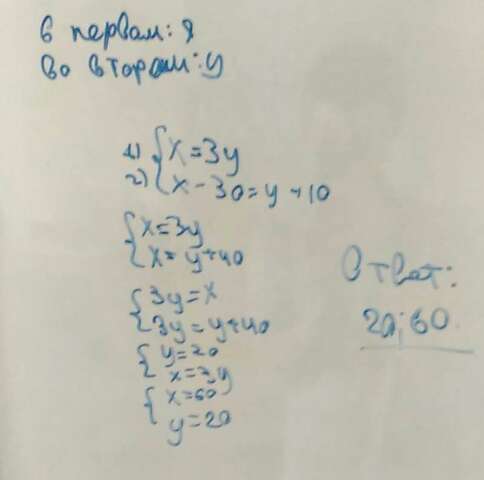 в первом: x
во втором: y
1) { x = 3y
2) { x - 30 = y + 10
{ x = 3y
{ x = y + 40
{ 3y = x
{ 3y = y + 40
{ y = 20
{ x = 3y
{ x = 60
y = 20
Ответ:
20; 60